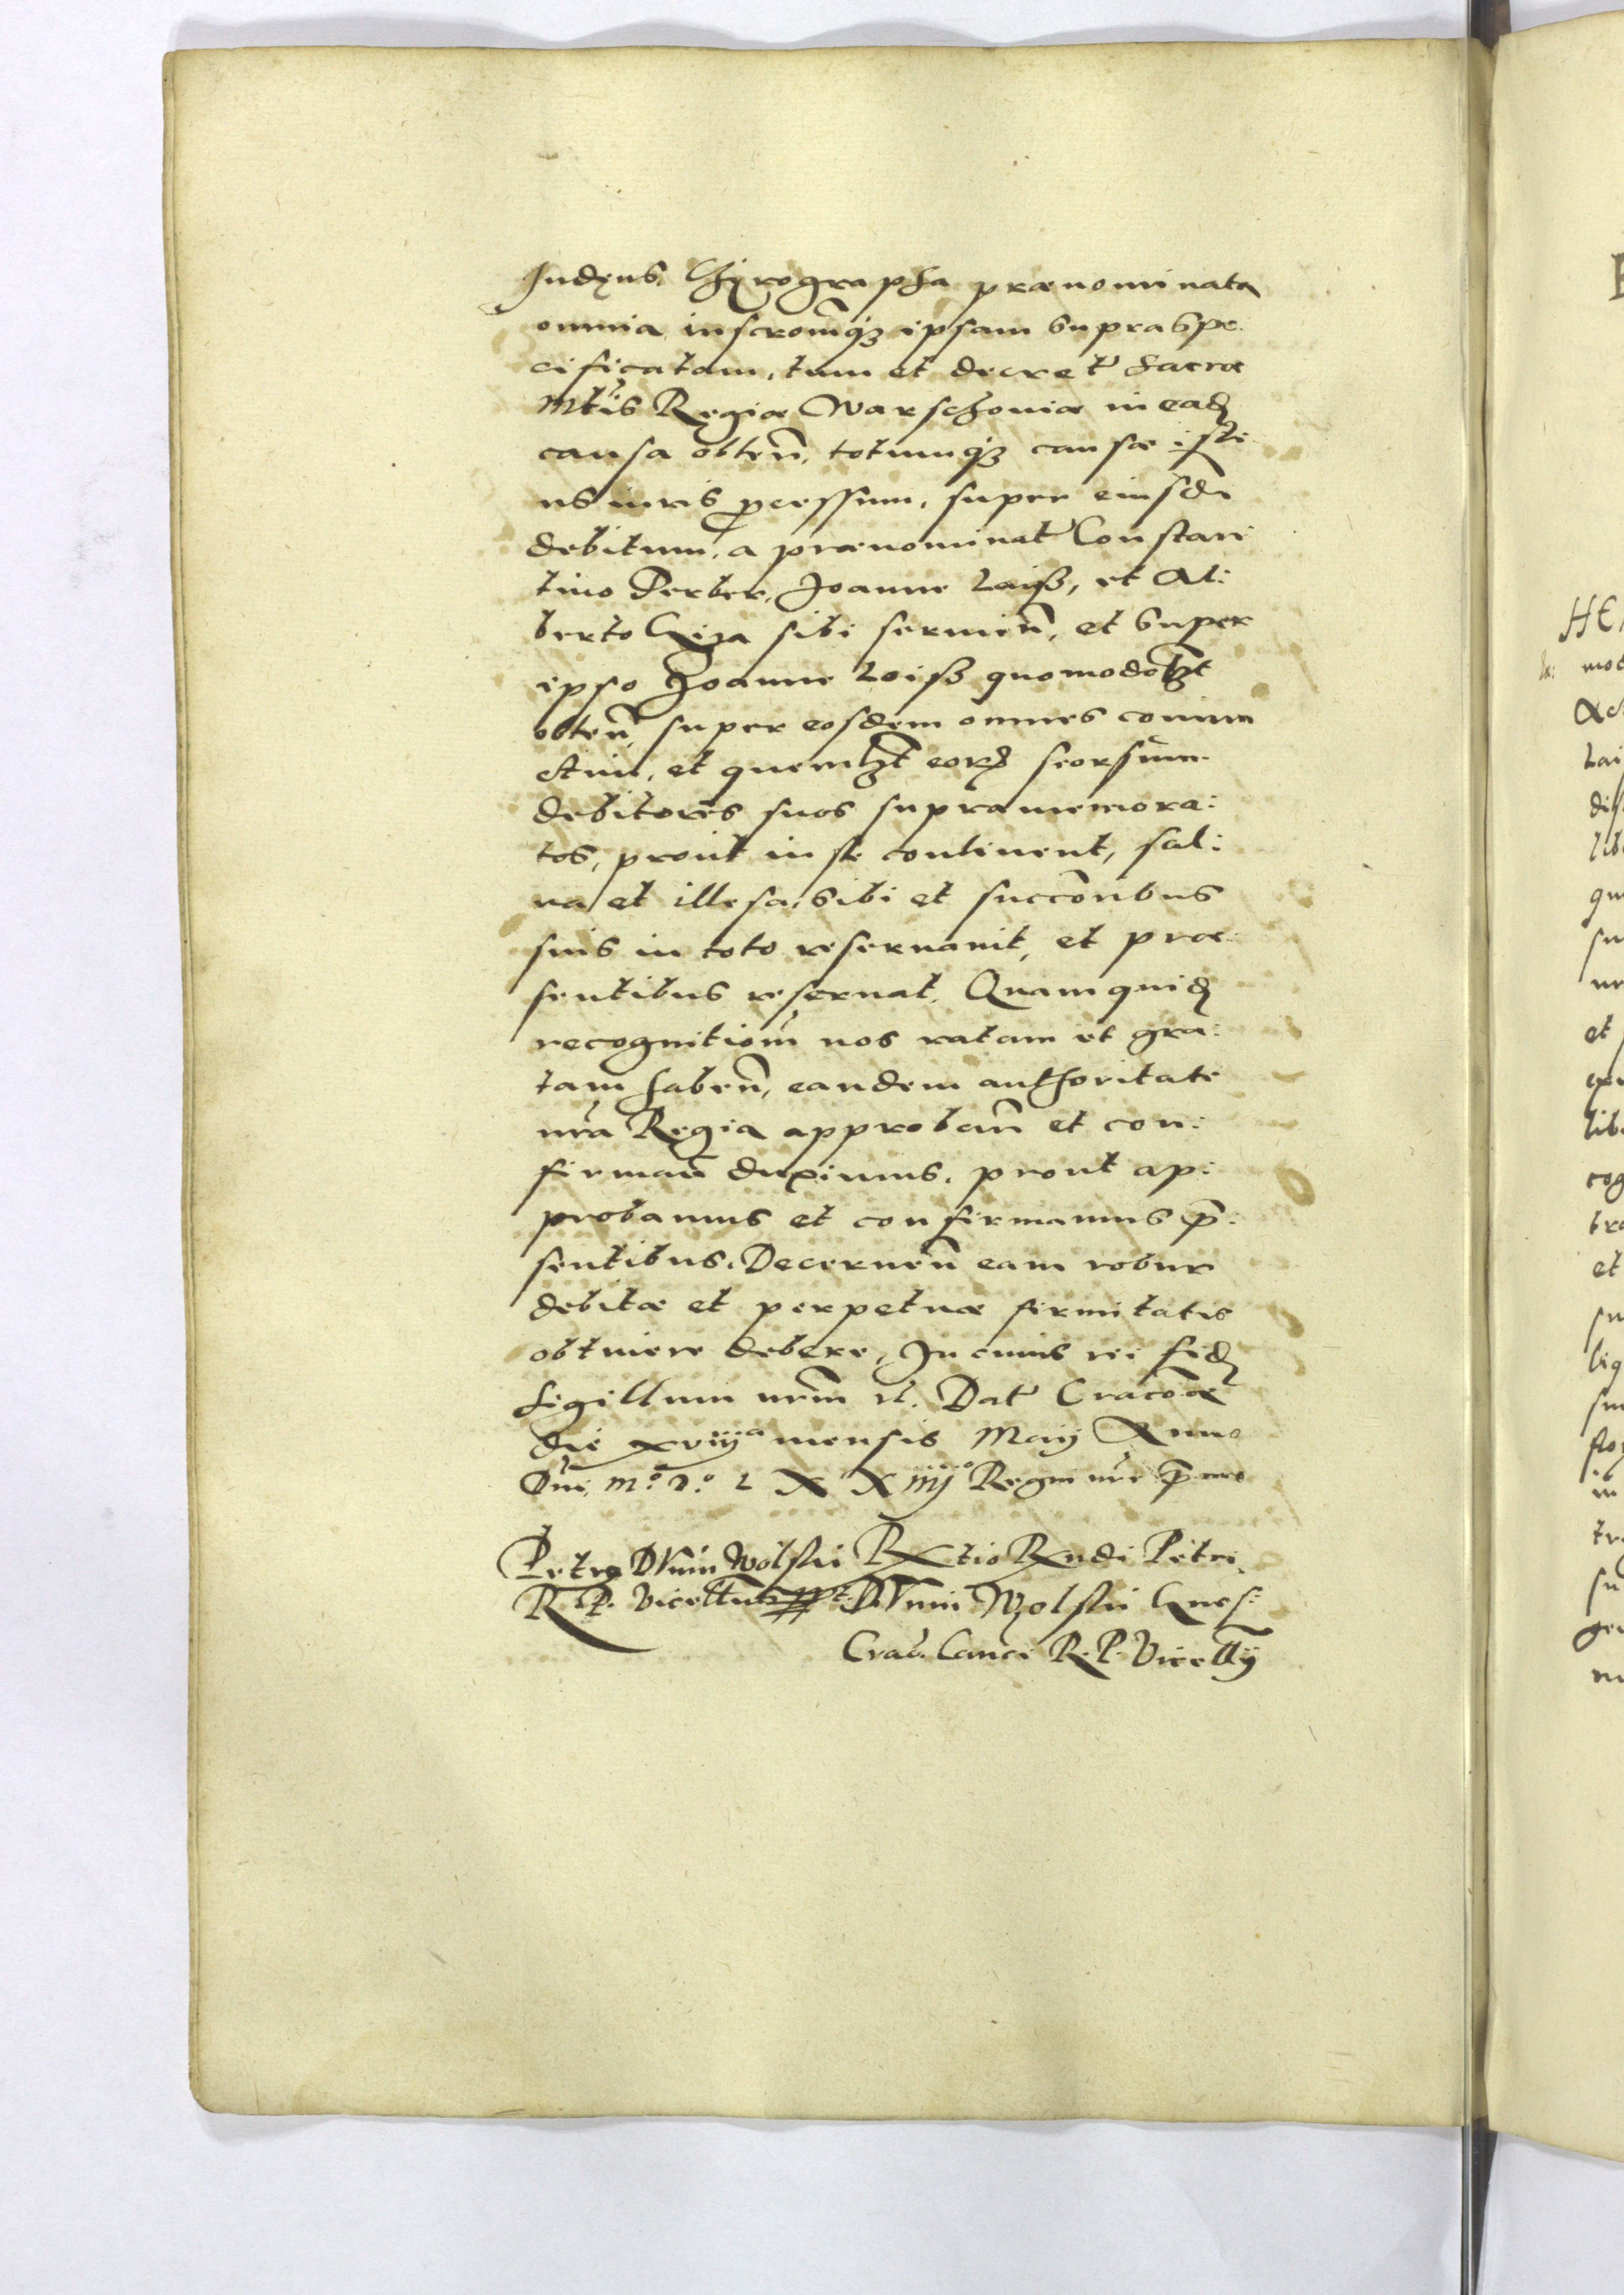 Judęus, Chyrographa prænominata
omnia, inscrōmq[ue] ipsam supraspe
cificatam, tum et decret̃ Sacræ
Mt̃is Regiæ Warschoviæ in ead[em]
causa obten̄, totumq[ue] causæ isti
us iuris p̱cessum, super eiusdē
debitum, a prænominat̃ Constan
tino Ferber, Joanne Laiss, et Al:
berto Giza sibi servien̄, et super
ipso Joanne Loiss quomodolb̃t
obten̄, super eosdem omnes coniun
ctim, et quemlb̃t eor[um] seorsim
debitores suos supramemora:
tos, prout in se continent, sal:
va et illesa, sibi et succōribus
suis in toto reservavit, et præ
sentibus reservat. Quam quid[em]
recognitiōm nos ratam et gra:
tam haben̄, eandem authoritate
nr̃a Regia approban̄ et con:
firman̄ duximus, prout ap:
probamus et confirmamus p̄:
sentibus. Decernen̄ eam robur
debitæ et perpetuæ firmitatis
obtinere debere, In cuius rei fid[em]
Sigillum nr̃m et̃. Dat̃ Cracōæ
die xviijª mensis Maij Anno
Dñi, M.º D.º LXXiiijº Regni nr̃i p̄mo
Petrus Dunin Wolski Rxtio Rxndi Petri
R. P. Vicecllrius sspt. Dunin Wolskii Gnes:
Crac. Canci R. P. Vicecllij
HE
mot
Lai
dis
lib
qu
su
et
lib
cog
bra
et
su
lig
su
in
tr
su
ge